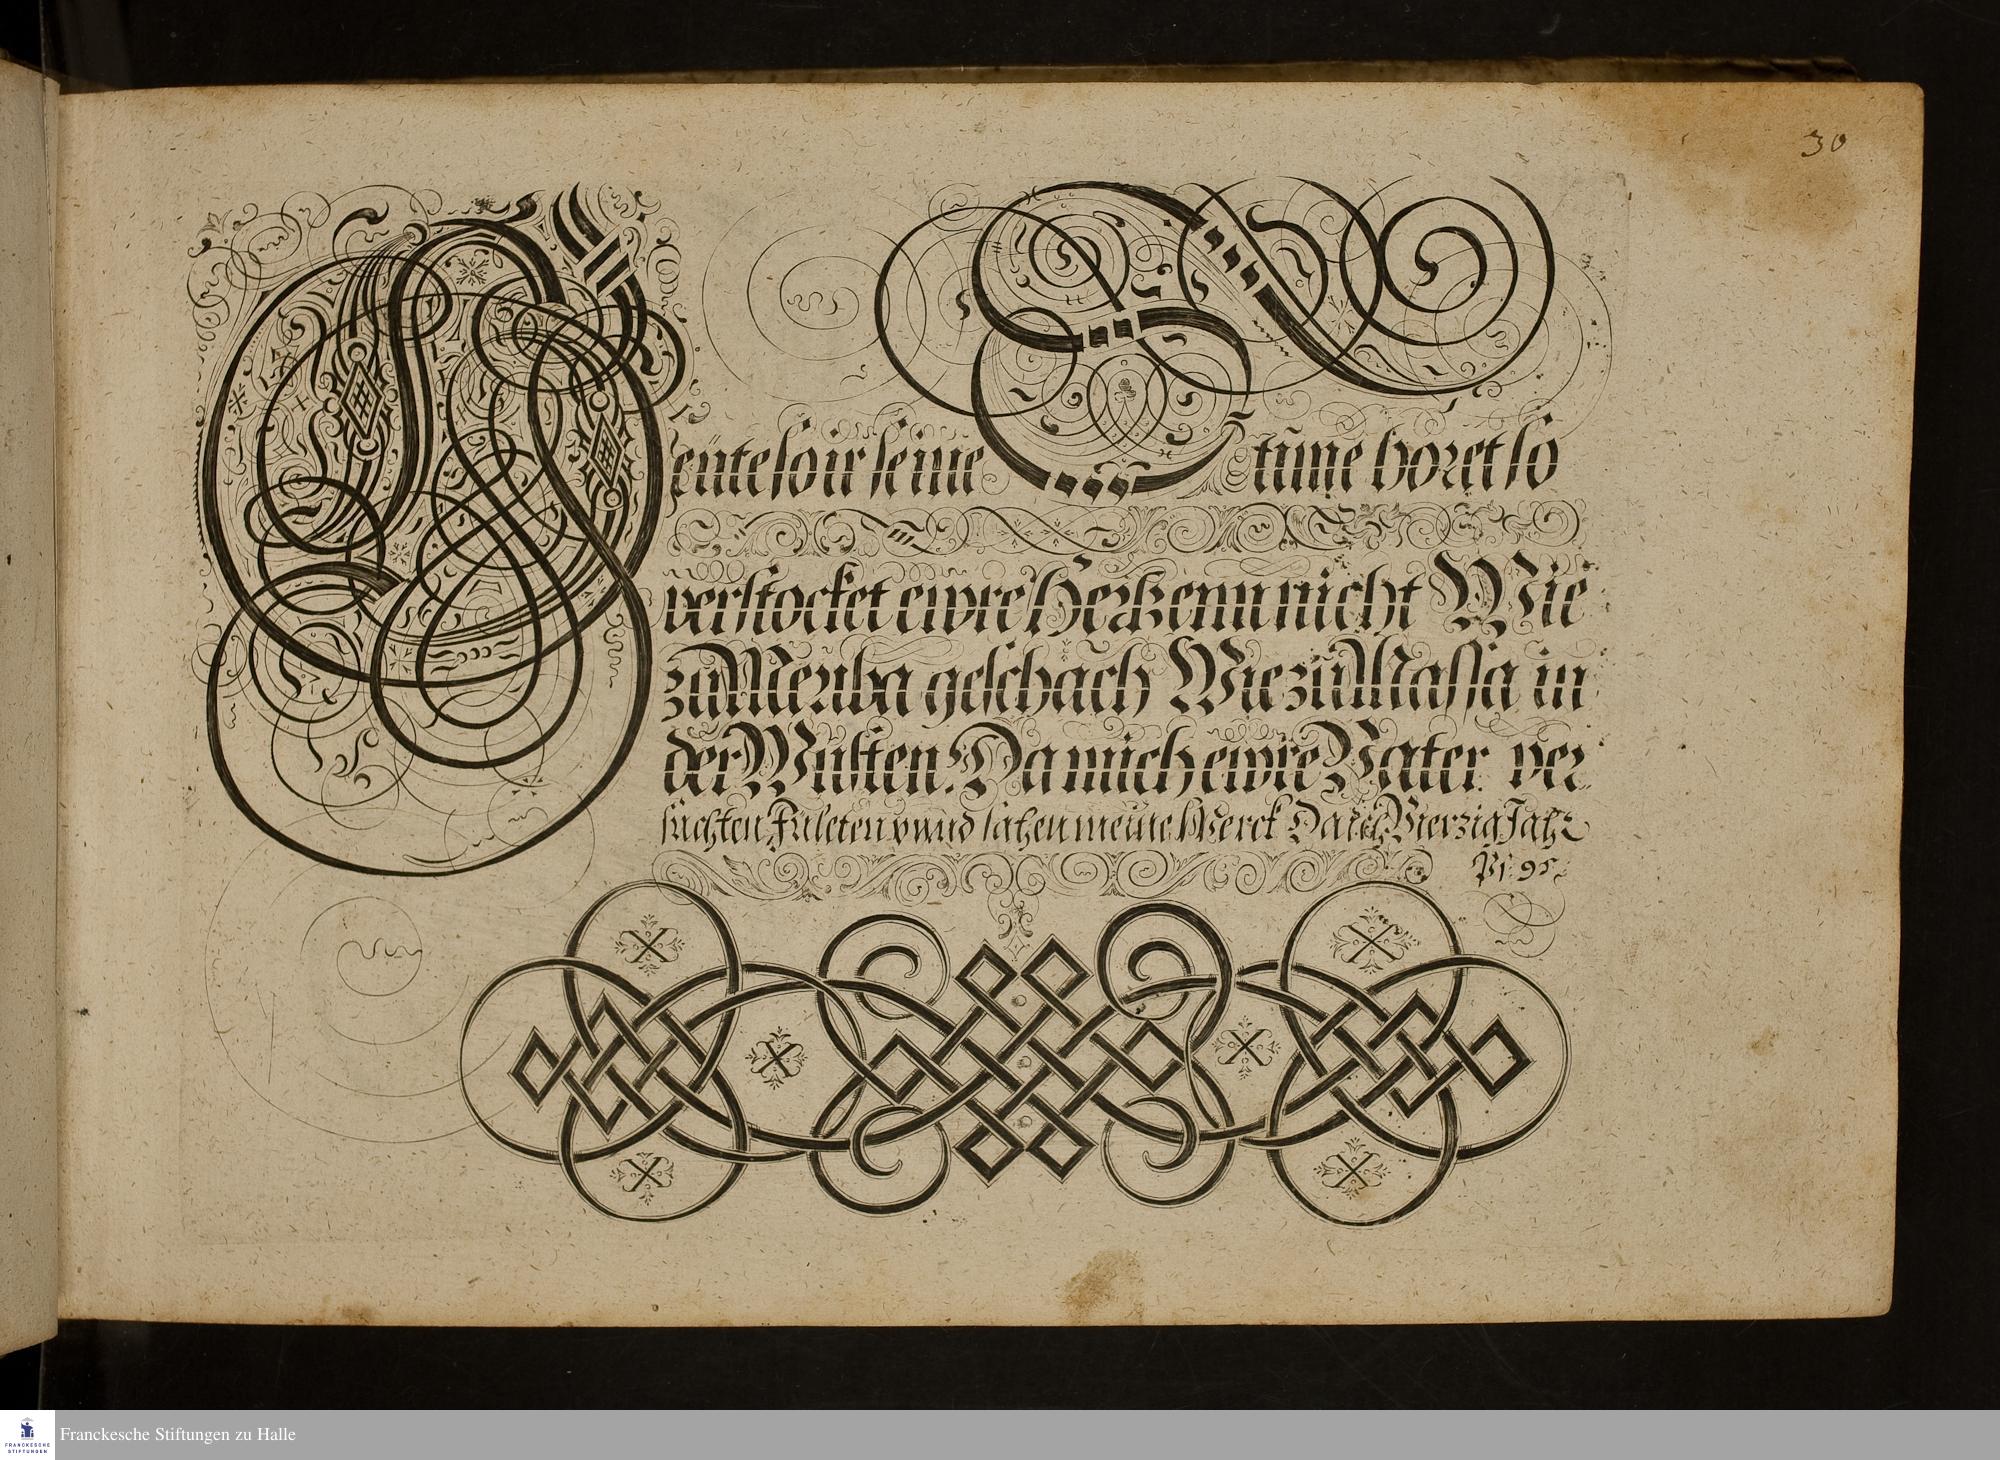 30
Heute so ir seine Stime höret so
verstocket ewre Hertzenn nicht Wie
zu Meriba geschach Wie zu Massa in
der Wüsten. Da mich ewre Väter ver
suchten Fületen vnnd sahen meine Werck Da ich Vierzig Jahr
Ps. 95.
FRANCKESCHE
STIFTUNGEN
Franckesche Stiftungen zu Halle